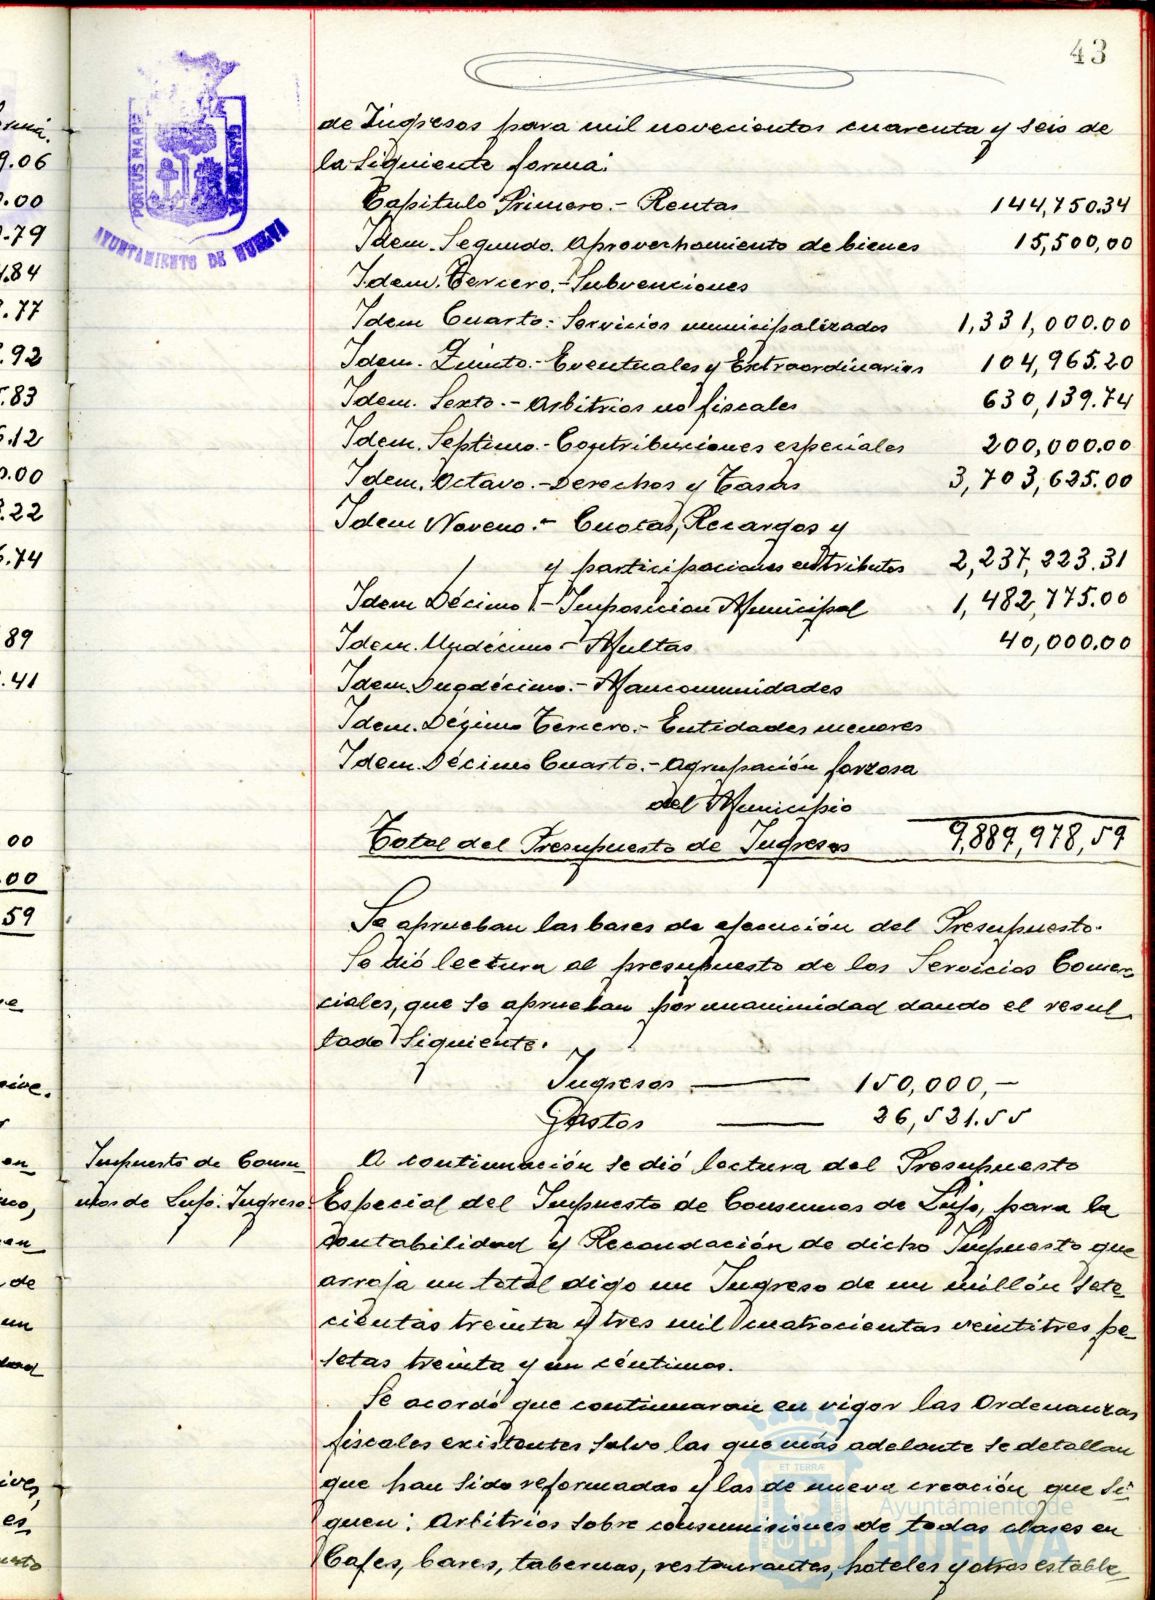 43
PORTUS MARIS
AYUNTAMIENTO DE HUELVA
de Ingresos para mil novecientos cuarenta y seis de
la siguiente forma:
Capitulo Primero.- Rentas 144,750.34
Idem. Segundo. Aprovechamiento de bienes 15,500,00
Idem. Tercero.- Subvenciones
Idem Cuarto.- Servicios municipalizados 1,331,000.00
Idem. Quinto.- Eventuales y Extraordinarios 104,965.20
Idem. Sexto.- Arbitrios no fiscales 630,139.74
Idem. Septimo.- Contribuciones especiales 200,000.00
Idem. Octavo.- Derechos y Tasas 3,703,625.00
Idem Noveno.- Cuotas, Recargos y
y participaciones en tributos 2,237,223.31
Idem Décimo.- Imposicion Municipal 1,482,775.00
Idem. Undécimo - Multas 40,000.00
Idem. Duodécimo.- Mancomunidades
Idem. Décimo Tercero.- Entidades menores
Idem. Décimo Cuarto.- Agrupación forzosa
del Municipio
Total del Presupuesto de Ingresos 9,889,978,59
Se aprueban las bases de ejecución del Presupuesto.
Se dió lectura al presupuesto de los Servicios Comer-
ciales, que se aprueban por unanimidad dando el resul-
tado siguiente.
Ingresos 150,000,-
Gastos 26,521.55
Impuesto de Consu-
mos de Lujo. Ingreso.
A continuación se dió lectura del Presupuesto
Especial del Impuesto de Consumos de Lujo, para la
contabilidad y Recaudación de dicho Impuesto que
arroja un total digo un Ingreso de un millón sete-
cientas treinta y tres mil cuatrocientas veintitres pe-
setas treinta y un céntimos.
Se acordó que continuaran en vigor las Ordenanzas
fiscales existentes salvo las que más adelante se detallan
que han sido reformadas y las de nueva creación que si-
guen: Arbitrios sobre consumiciones de todas clases en
Cafes, bares, tabernas, restaurantes, hoteles y otros estable-
Ayuntamiento de
HUELVA